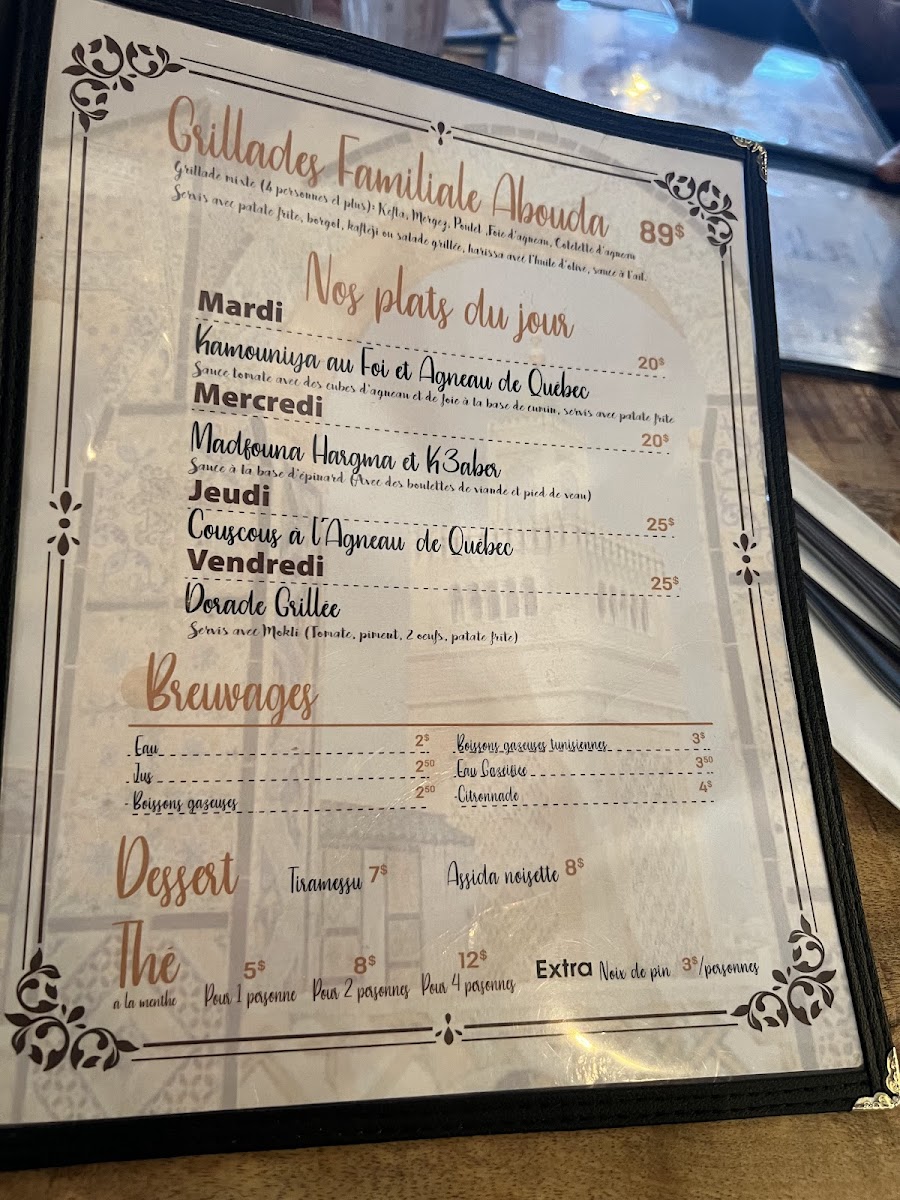 Grillades Familiale Abouda 89$
Grillade mixte (4 personnes et plus): Kefta, Mergez, Poulet ,Foie d'agneau, Cotelette d'agneau
Servis avec patate frite, borgol, kafteji ou salade grillée, harissa avec l'huile d'olive, sauce à l'ail.
Nos plats du jour
Mardi
20$
Kamouniya au Foi et Agneau de Québec
Sauce tomate avec des cubes d'agneau et de foie à la base de cumin, servis avec patate frite
Mercredi
20$
Madfouna Hargma et K3aber
Sauce à la base d'épinard (Avec des boulettes de viande et pied de veau)
Jeudi
25$
Couscous à l'Agneau de Québec
Vendredi
25$
Dorade Grillée
Servis avec Mokli (Tomate, piment, 2 oeufs, patate frite)
Breuvages
Eau 2$
Jus 250
Boissons gazeuses 250
Boissons gazeuses tunisiennes 3$
Eau Gazéifiée 350
Citronnade 4$
Dessert
Tiramessu 7$
Assida noisette 8$
Thé
a la menthe
5$
Pour 1 personne
8$
Pour 2 personnes
12$
Pour 4 personnes
Extra Noix de pin 3$/personnes